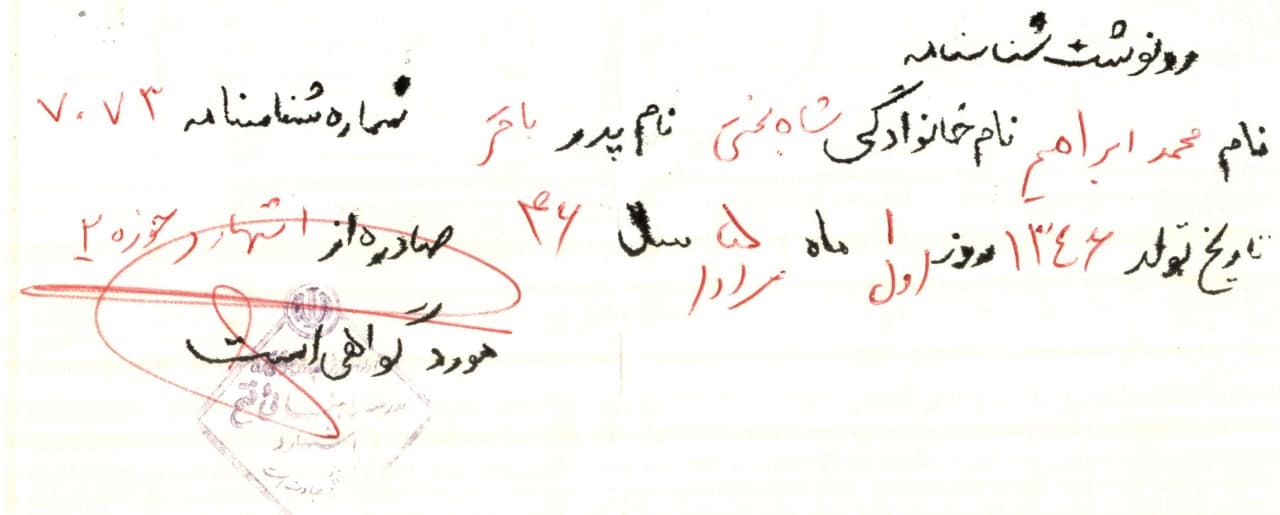 رونوشت شناسنامه
نام محمد ابراهیم نام خانوادگی شاه بختی نام پدر باقر شماره شناسنامه ۷۰۷۳
تاریخ تولد ۱۳۴۶ روز ۱ ماه ۵ سال ۴۶ صادره از اشتهارد حوزه ۲
اول مرداد
مورد گواهی است
اشتهارد